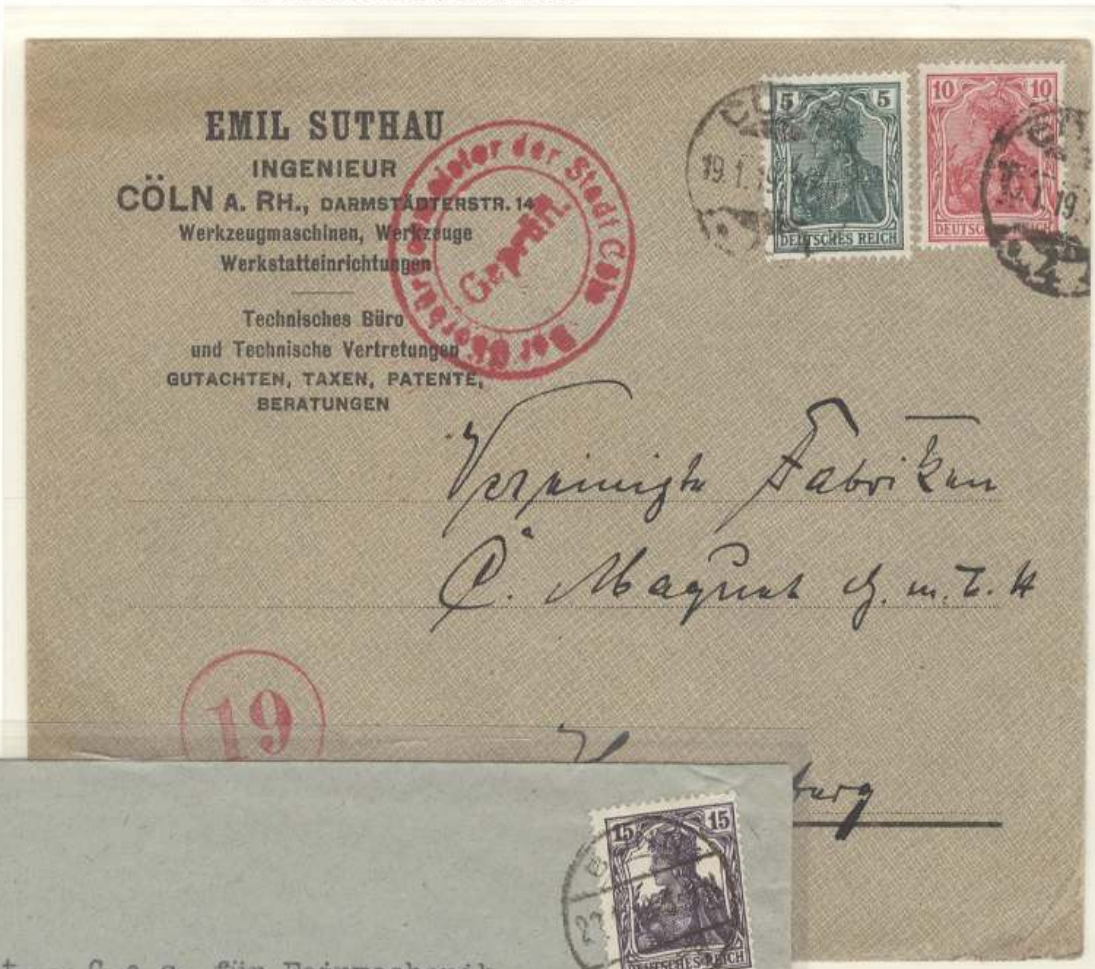 EMIL SUTHAU
INGENIEUR
CÖLN A. RH., DARMSTÄDTERSTR. 14
Werkzeugmaschinen, Werkzeuge
Werkstatteinrichtungen
Technisches Büro
und Technische Vertretungen
GUTACHTEN, TAXEN, PATENTE,
BERATUNGEN
Der Oberbürgermeister der Stadt Cöln
Geprüft.
5 5
DEUTSCHES REICH
10 10
DEUTSCHES REICH
19.1.19
1.19
Vereinigte Fabriken
C. Maquet G.m.b.H
19
15 15
DEUTSCHES REICH
für Feinmechanik